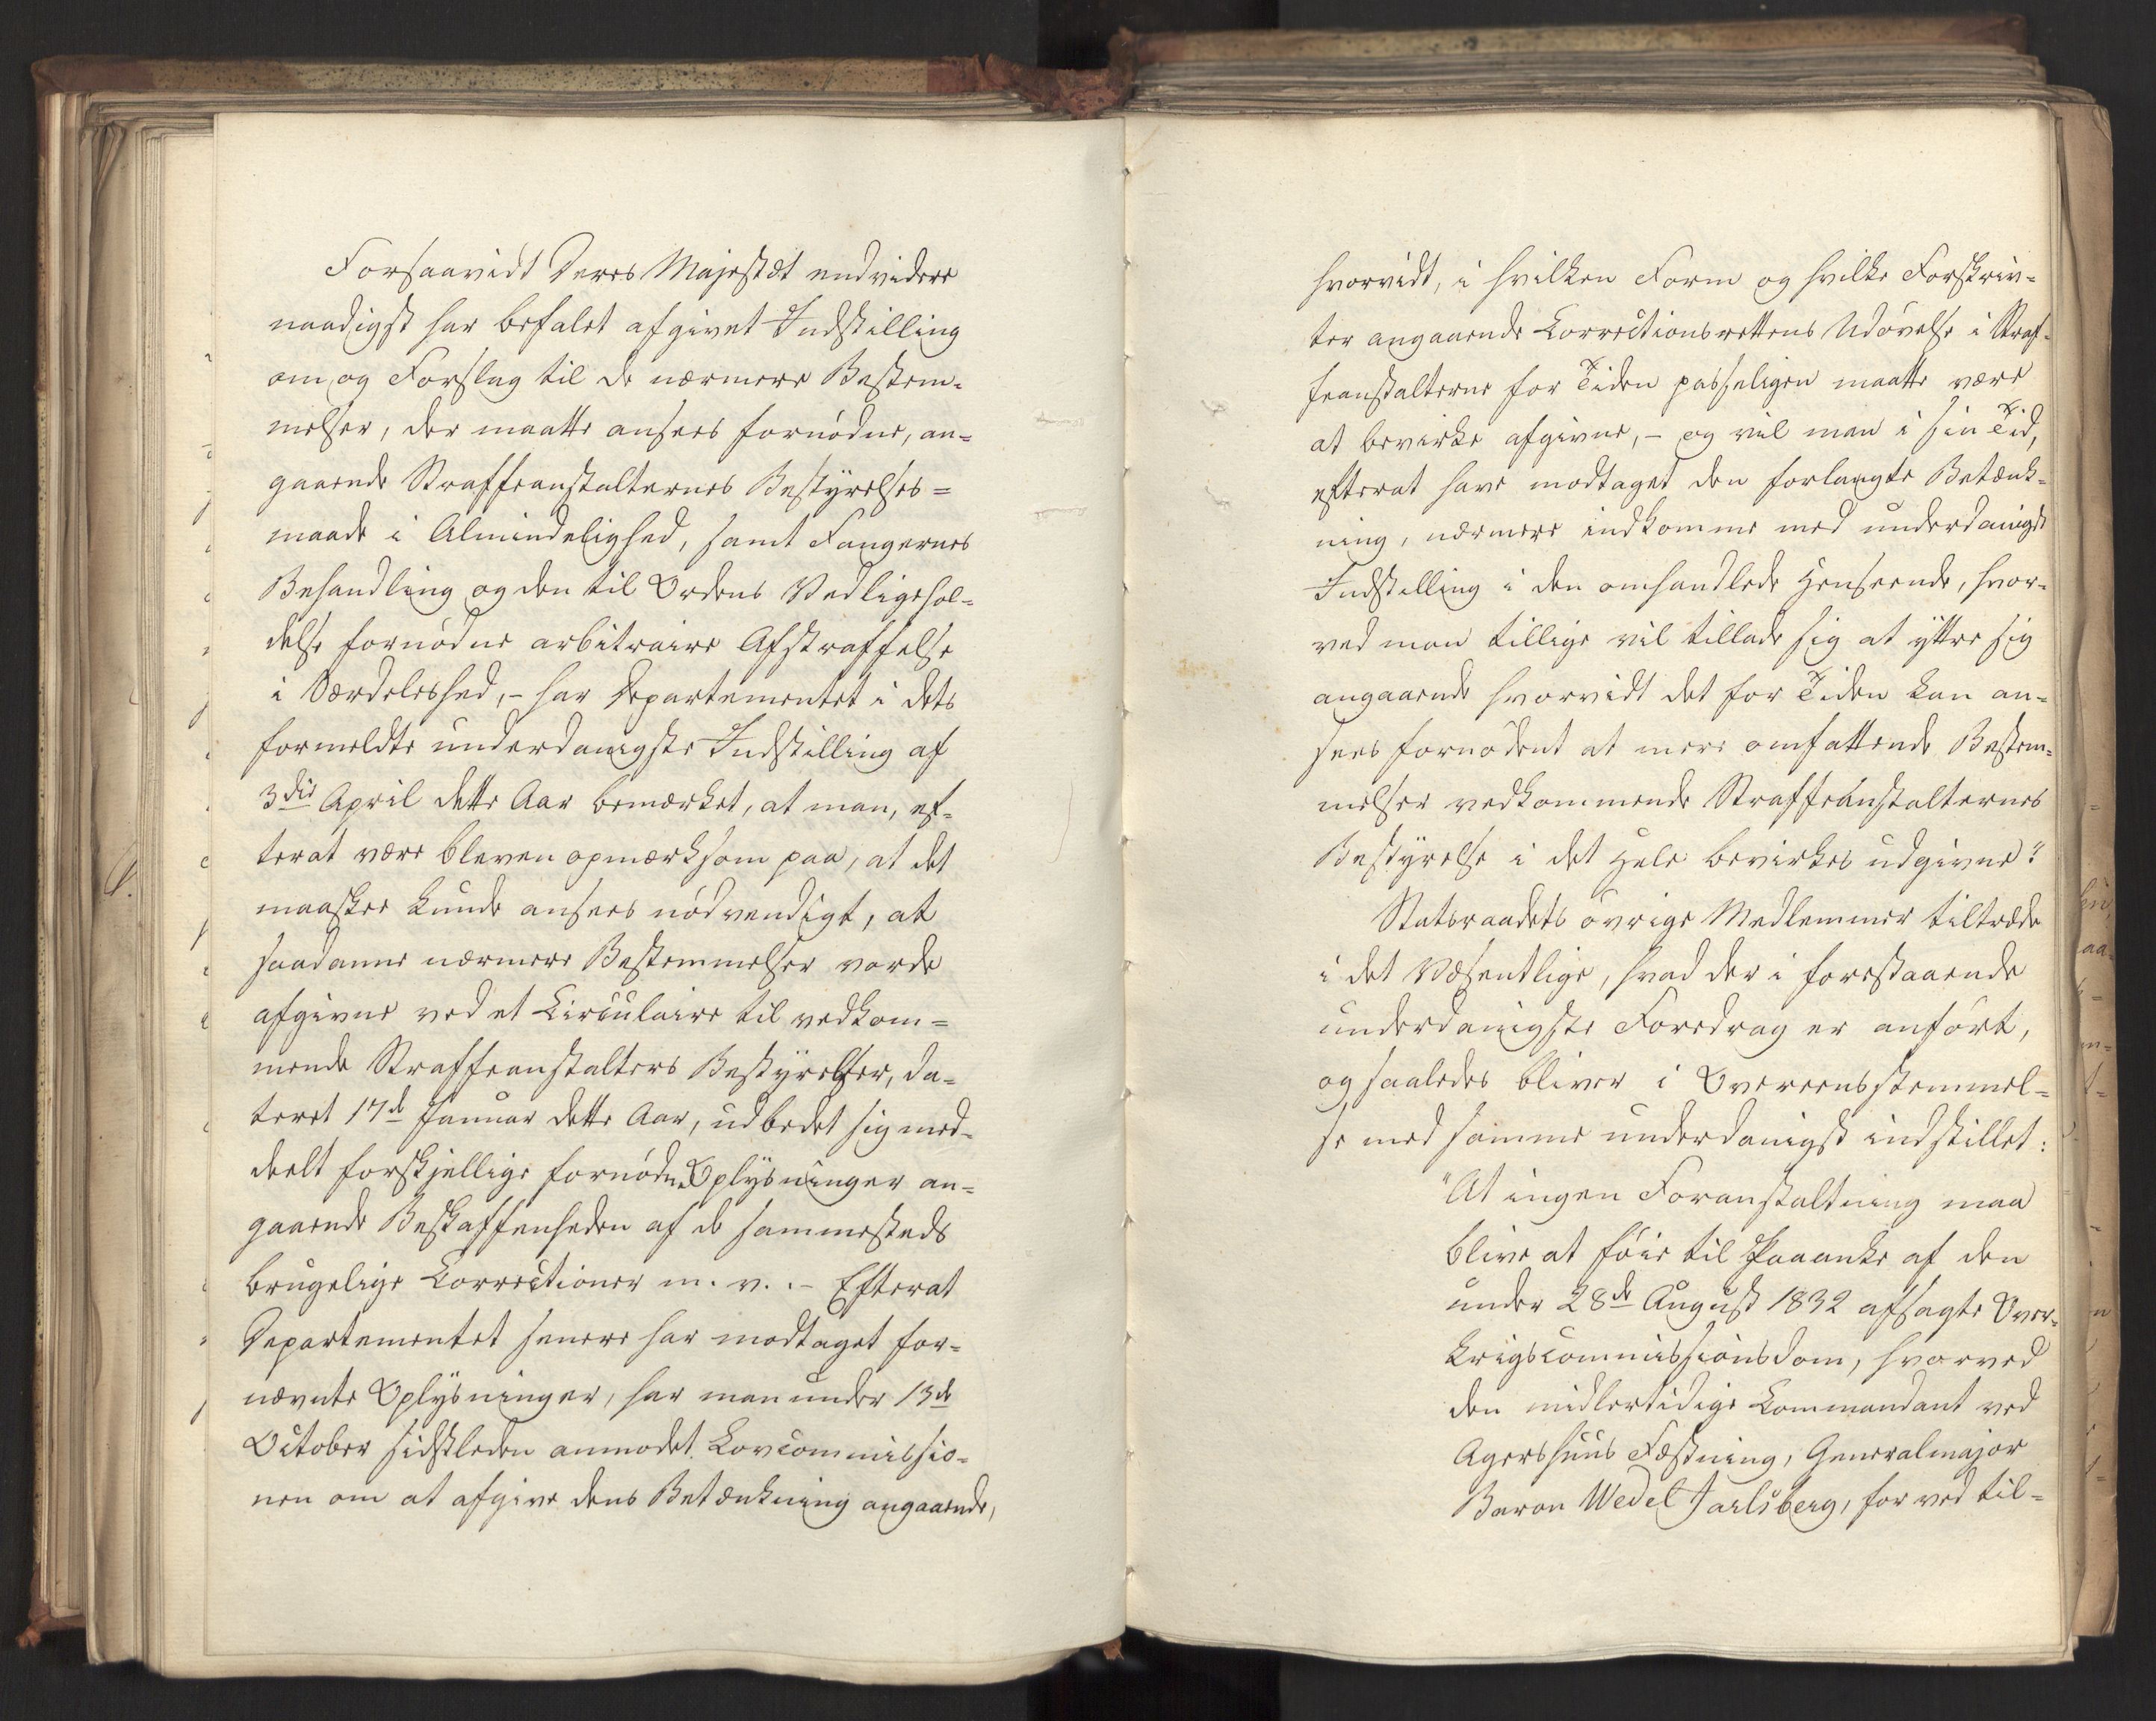 Forsaavidt Deres Majestæt endvidere
naadigst har befalet afgivet Indstilling
om og Forslag til de nærmere Bestem-
melser, der maatte ansees fornødne, an-
gaaende Straffeanstalternes Bestyrelses-
maade i Almindelighed, samt Fangernes
Behandling og den til Ordens Vedligehol-
delse fornødne arbitraire Afstraffelse
i Særdeleshed, - har Departementet i dets
formeldte underdanigste Indstilling af
3die April dette Aar bemærket, at man, ef-
terat være bleven opmærksom paa, at det
maaskee kunde ansees nødvendigt, at
saadanne nærmere Bestemmelser vorde
afgivne ved et Circulaire til vedkom-
mende Straffeanstalters Bestyrelser, da-
teret 17de Januar dette Aar, udbedet sig med-
deelt forskjellige fornødne Oplysninger an-
gaaende Beskaffenheden af de sammesteds
brugelige Correctioner m. v. - Efterat
Departementet senere har modtaget for-
nævnte Oplysninger, har man under 13de
October sidstleden anmodet Lovcommissio-
nen om at afgive dens Betænkning angaaende,
hvorvidt, i hvilken Form og hvilke Forskriv-
ter angaaende Correctionsrettens Udøvelse i Straf-
feanstalterne for Tiden passeligen maatte være
at bevirke afgivne, - og vil man i sin Tid,
efterat have modtaget den forlangte Betænk-
ning, nærmere indkomme med underdanigst
Indstilling i den omhandlede Henseende, hvor-
ved man tillige vil tillade sig at yttre sig
angaaende hvorvidt det for Tiden kan an-
sees fornødent at mere omfattende Bestem-
melser vedkommende Straffeanstalternes
Bestyrelse i det Hele bevirkes udgivne?
Statsraadets øvrige Medlemmer tiltræde
i det Væsentlige, hvad der i forestaaende
underdanigste Foredrag er anført,
og saaledes bliver i Overeensstemmel-
se med samme underdanigst indstillet:
"At ingen Foranstaltning maa
blive at føie til Paaanke af den
under 28de August 1832 afsagte Over-
krigscommissionsdom, hvorved
den midlertidige Commandant ved
Agershuus Fæstning, Generalmajor
Baron Wedel Jarlsberg, for ved til-